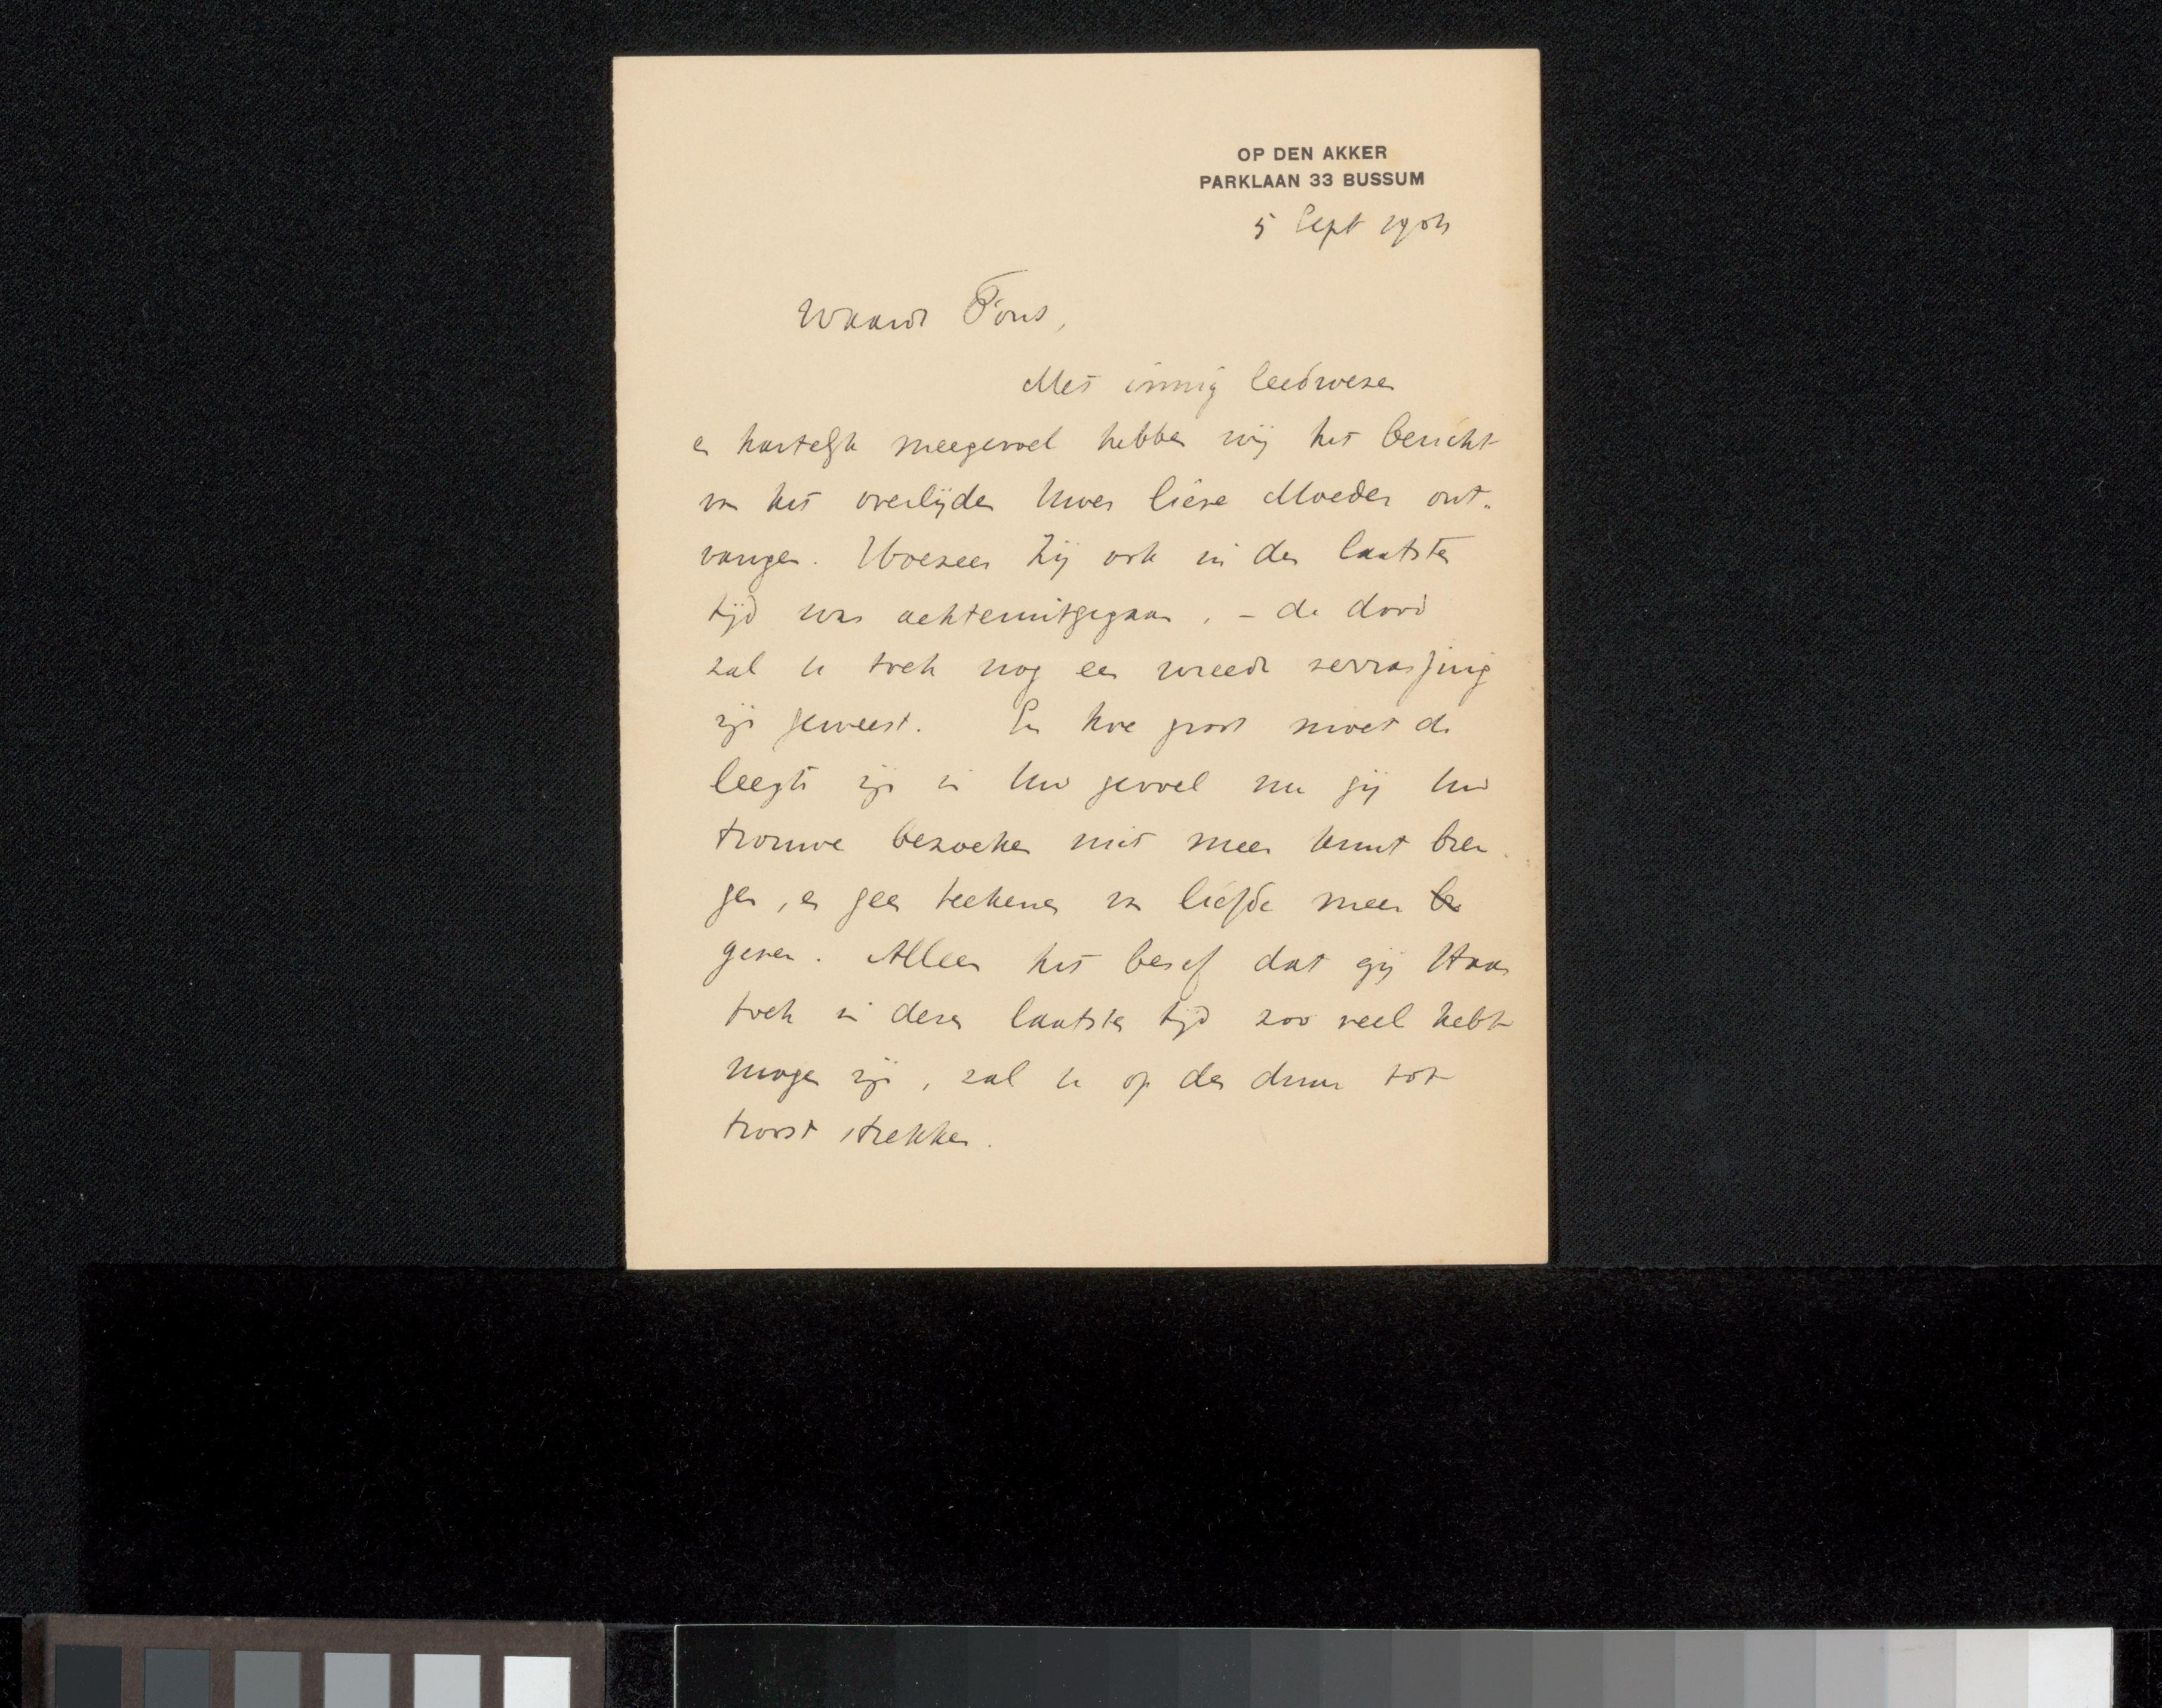 OP DEN AKKER
PARKLAAN 33 BUSSUM
5 Sept 1904
Waarde Fons,
Met innig leedwezen
en hartelijk meegevoel hebben wij het bericht
van het overlijden Uwer lieve Moeder ont-
vangen. Hoezeer Zij ook in den laatsten
tijd was achteruitgegaan, - de dood
zal U toch nog een wreede verrassing
zijn geweest. En hoe groot moet de
leegte zijn in Uw gevoel nu gij Uw
trouwe bezoeken niet meer kunt bren-
gen, en geen teekenen van liefde meer
geven. Alleen het besef dat gij Haar
toch in dezen laatsten tijd zoo veel hebt
mogen zijn, zal U op den duur tot
troost strekken.